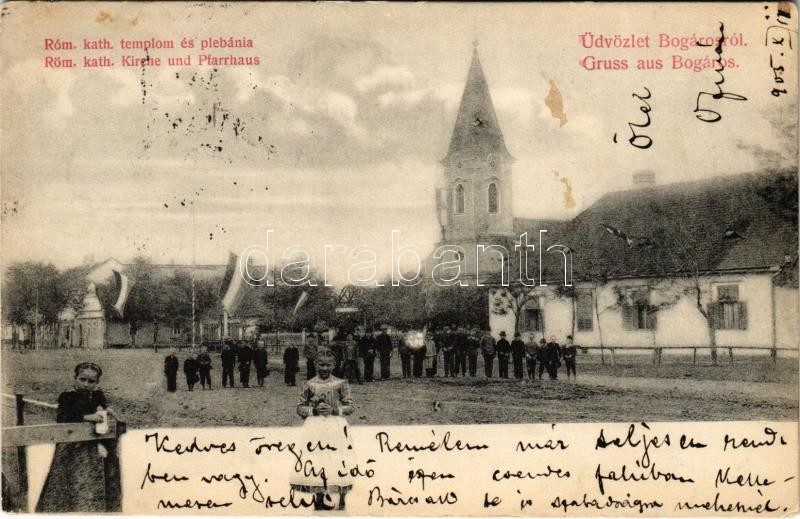 Róm. kath. templom és plebánia
Röm. kath. Kirche und Pfarrhaus
Üdvözlet Bogárosról.
Gruss aus Bogáros.
Ölel
905. X
darabanth.com
Kedves öregem! Remélem már teljesen rend-
ben vagy. Az idő csendes faluban Kelle-
mesen telik. Bárcsak te is szabadságra mehetnél.